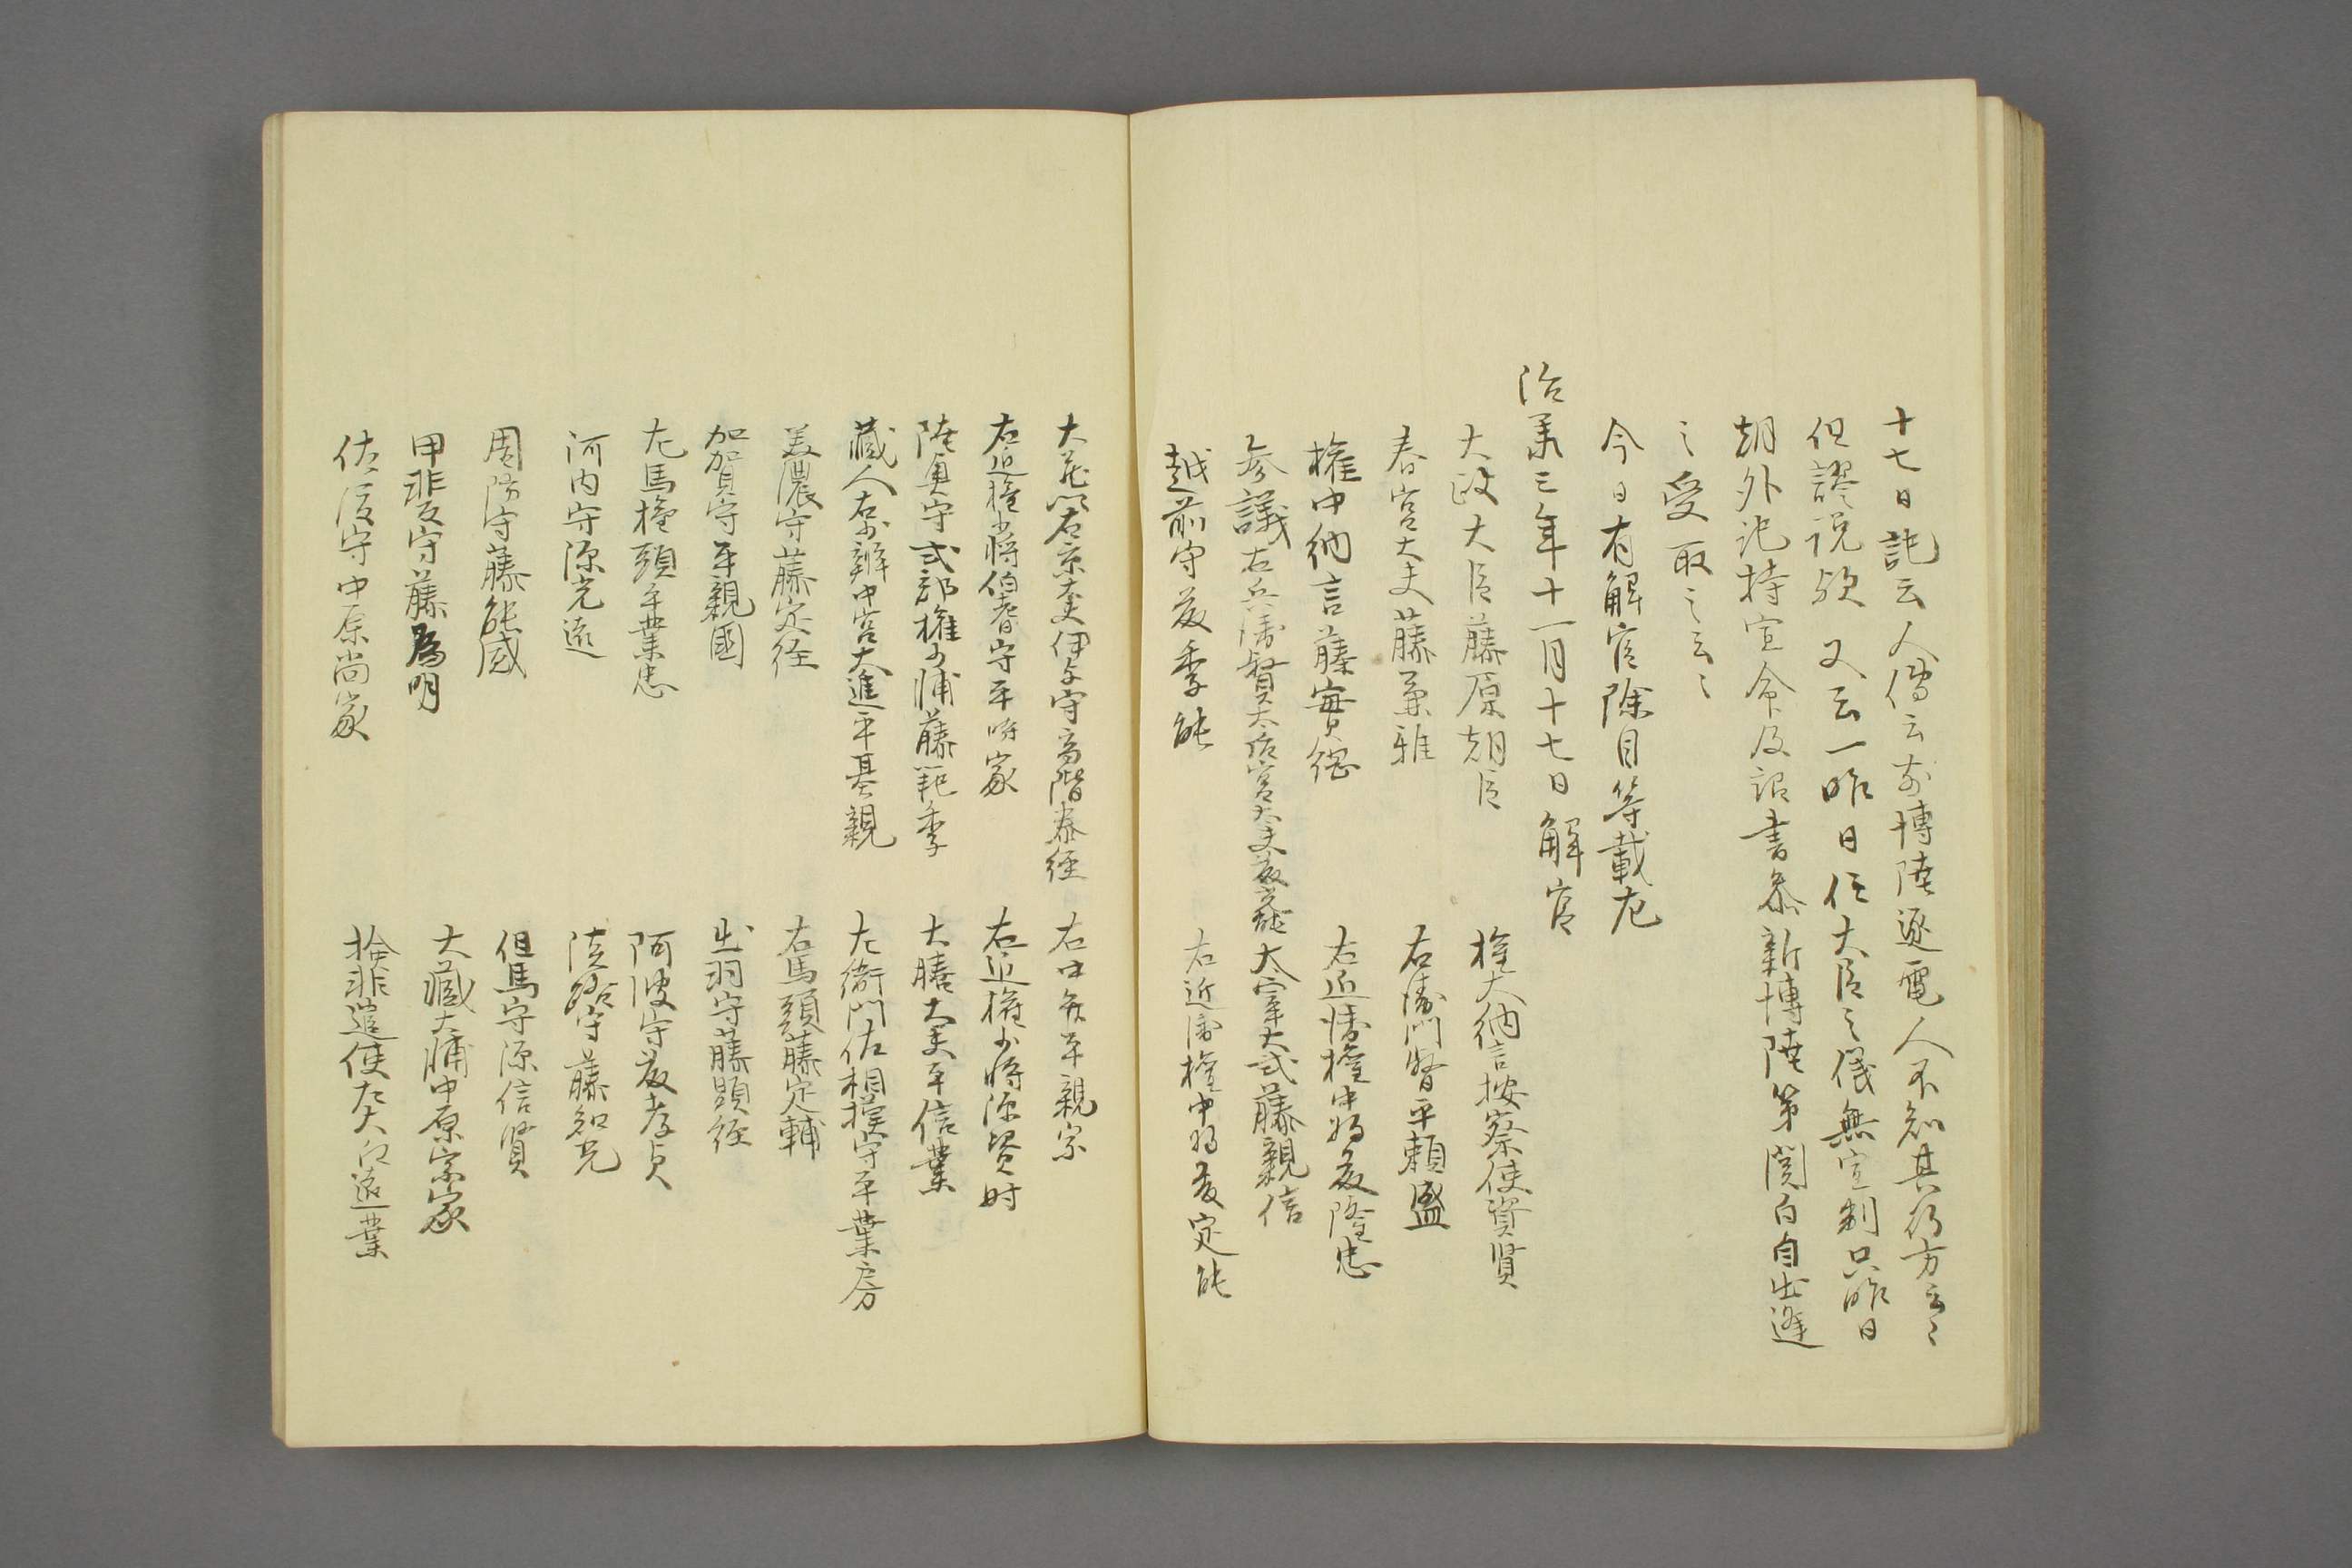 十七日記云人傳云前博陸逐電人不知其行方云々
但謬説歟又云一昨日任大臣之儀無宣制只昨日
朝外記持宣命及詔書參新博陸第関白自出逢
之受取之云々
今日有解官除目等載左
治承三年十一月十七日解官
太政大臣藤原朝臣 權大納言按察使資賢
春宮大夫藤兼雅 右衛門督平頼盛
權中納言藤實綱 右近衛權中将藤隆忠
参議右兵衛督太后宮大夫藤光能 大宰大弐藤親信
越前守藤季能 右近衛權中将藤定能
大蔵卿右京大夫伊与守高階泰経 右中弁平親宗
右近權少将伯耆守平時家 右近權少将源資時
陸奥守式部權少輔藤範季 大膳大夫平信業
蔵人右少辨中宮大進平基親 左衛門佐相模守平業房
美濃守藤定経 右馬頭藤定輔
加賀守平親國 出羽守藤顕経
左馬權頭平業忠 阿波守藤孝貞
河内守源光遠 淡路守藤知光
周防守藤能盛 但馬守源信賢
甲斐守藤為明 大蔵大輔中原宗家
佐渡守中原尚家 検非違使左大江遠業